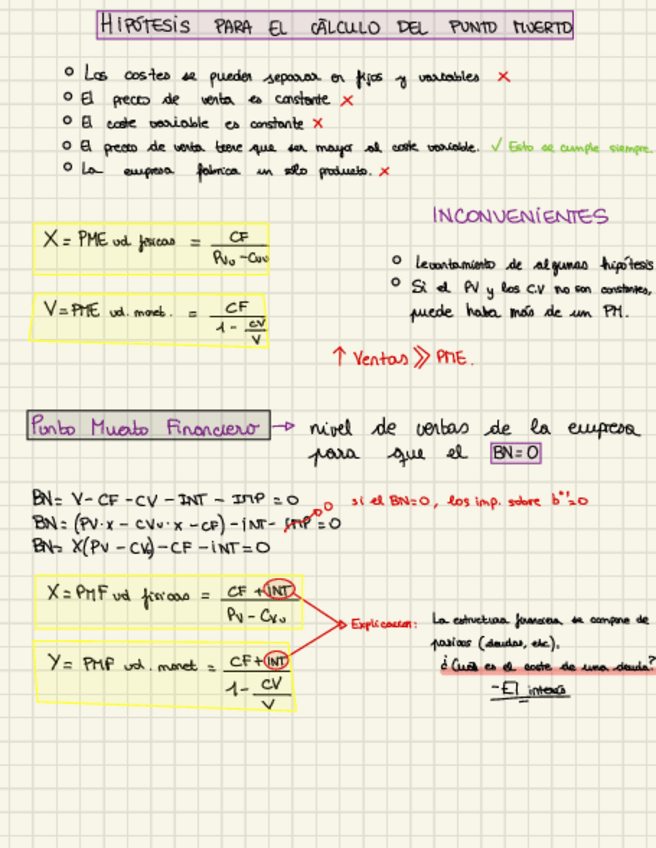 HIPÓTESIS PARA EL CÁLCULO DEL PUNTO MUERTO
Los costes se pueden separar en fijos y variables ×
El precio de venta es constante ×
El coste variable es constante ×
El precio de venta tiene que ser mayor al coste variable. ✓ Esto se cumple siempre.
La empresa fabrica un sólo producto. ×
X = PME ud físicas = CF / PVu - CVu
V = PME ud. monet. = CF / 1 - CV/V
INCONVENIENTES
Levantamiento de algunas hipótesis
Si el PV y los C.V no son constantes,
puede haber más de un PM.
↑ Ventas >> PME.
Punto Muerto Financiero → nivel de ventas de la empresa
para que el BN=0
BN= V - CF - CV - INT - IMP = 0
si el BN=0, los imp. sobre bº=0
BN= (PV·x - CVu·x - CF) - INT - IMP = 0
0
BN= X(PV - CV) - CF - INT = 0
X = PMF ud físicas = CF + INT / PV - CVu
Y = PMF ud. monet = CF + INT / 1 - CV/V
Explicación: La estructura financiera se compone de
pasivos (deudas, etc).
¿Cuál es el coste de una deuda?
- El interés